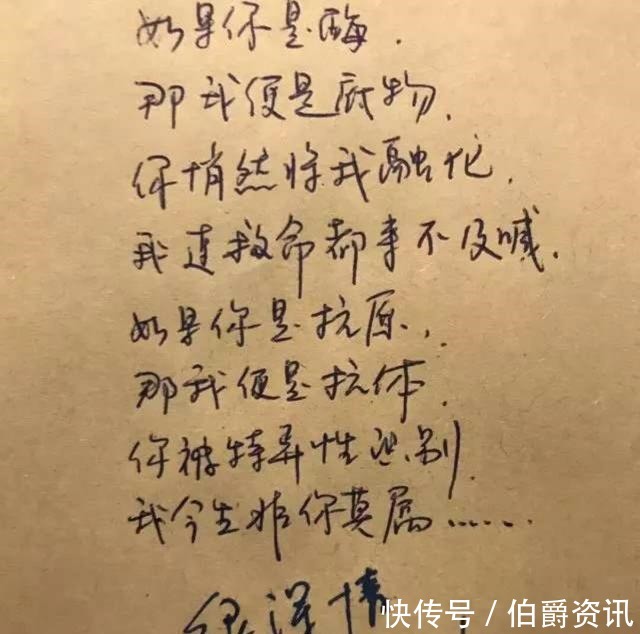 如果你是酶.
那我便是底物,
你悄然将我融化,
我连救命都来不及喊.
如果你是抗原,
那我便是抗体.
你被特异性识别,
我今生非你莫属......
深情
快传号 / 伯爵资讯